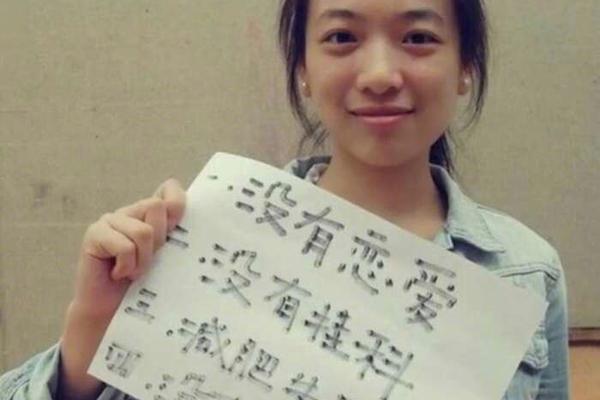 一.没有恋爱
二.没有挂科
三.减肥
四.